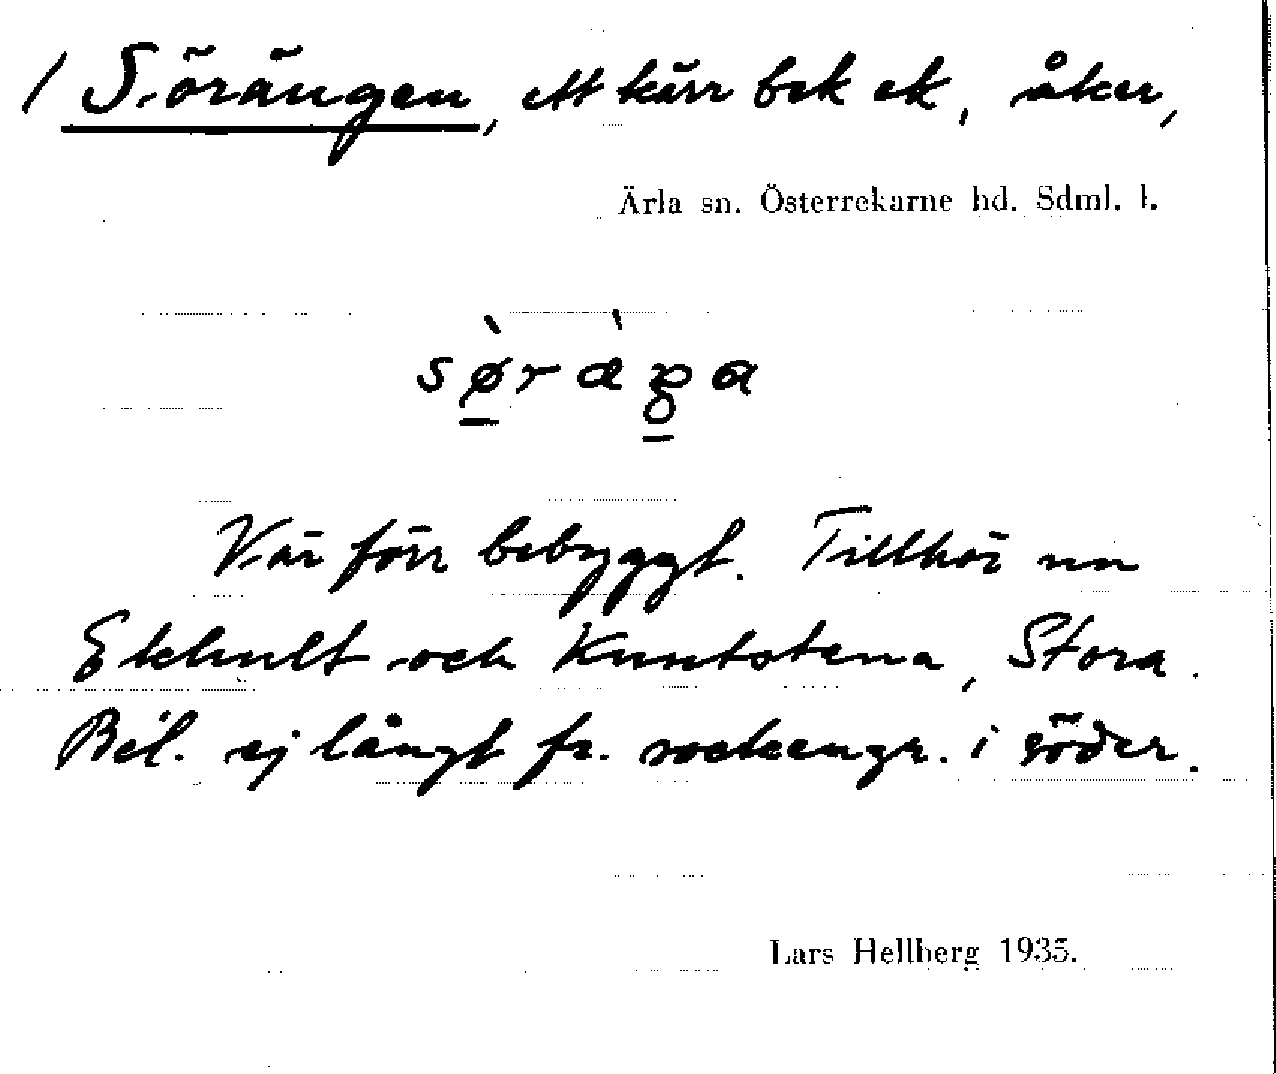 / Sörängen, ett kärr bek ek, åker,
Ärla sn. Österrekarne hd. Sdml. l.
Var förr bebyggt. Tillhör nu
Ekhult och Kuntstena, Stora.
Bel. ej långt fr. sockengr. i söder.
Lars Hellberg 1935.